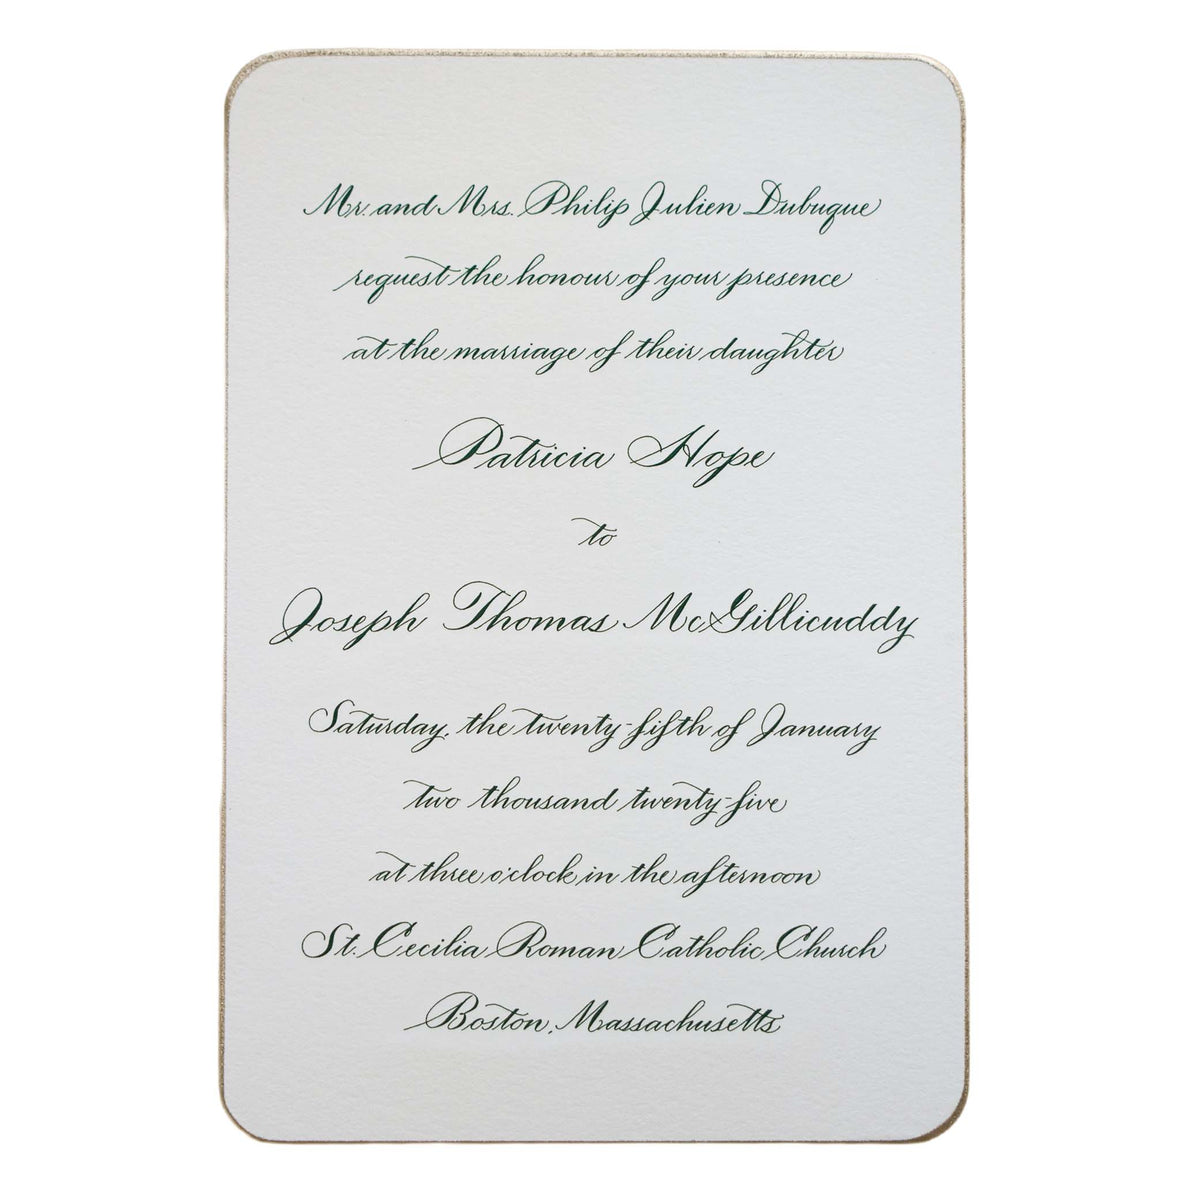 Mr. and Mrs. Philip Julien Dubuque
request the honour of your presence
at the marriage of their daughter
Patricia Hope
to
Joseph Thomas McGillicuddy
Saturday, the twenty-fifth of January
two thousand twenty-five
at three o'clock in the afternoon
St. Cecilia Roman Catholic Church
Boston, Massachusetts